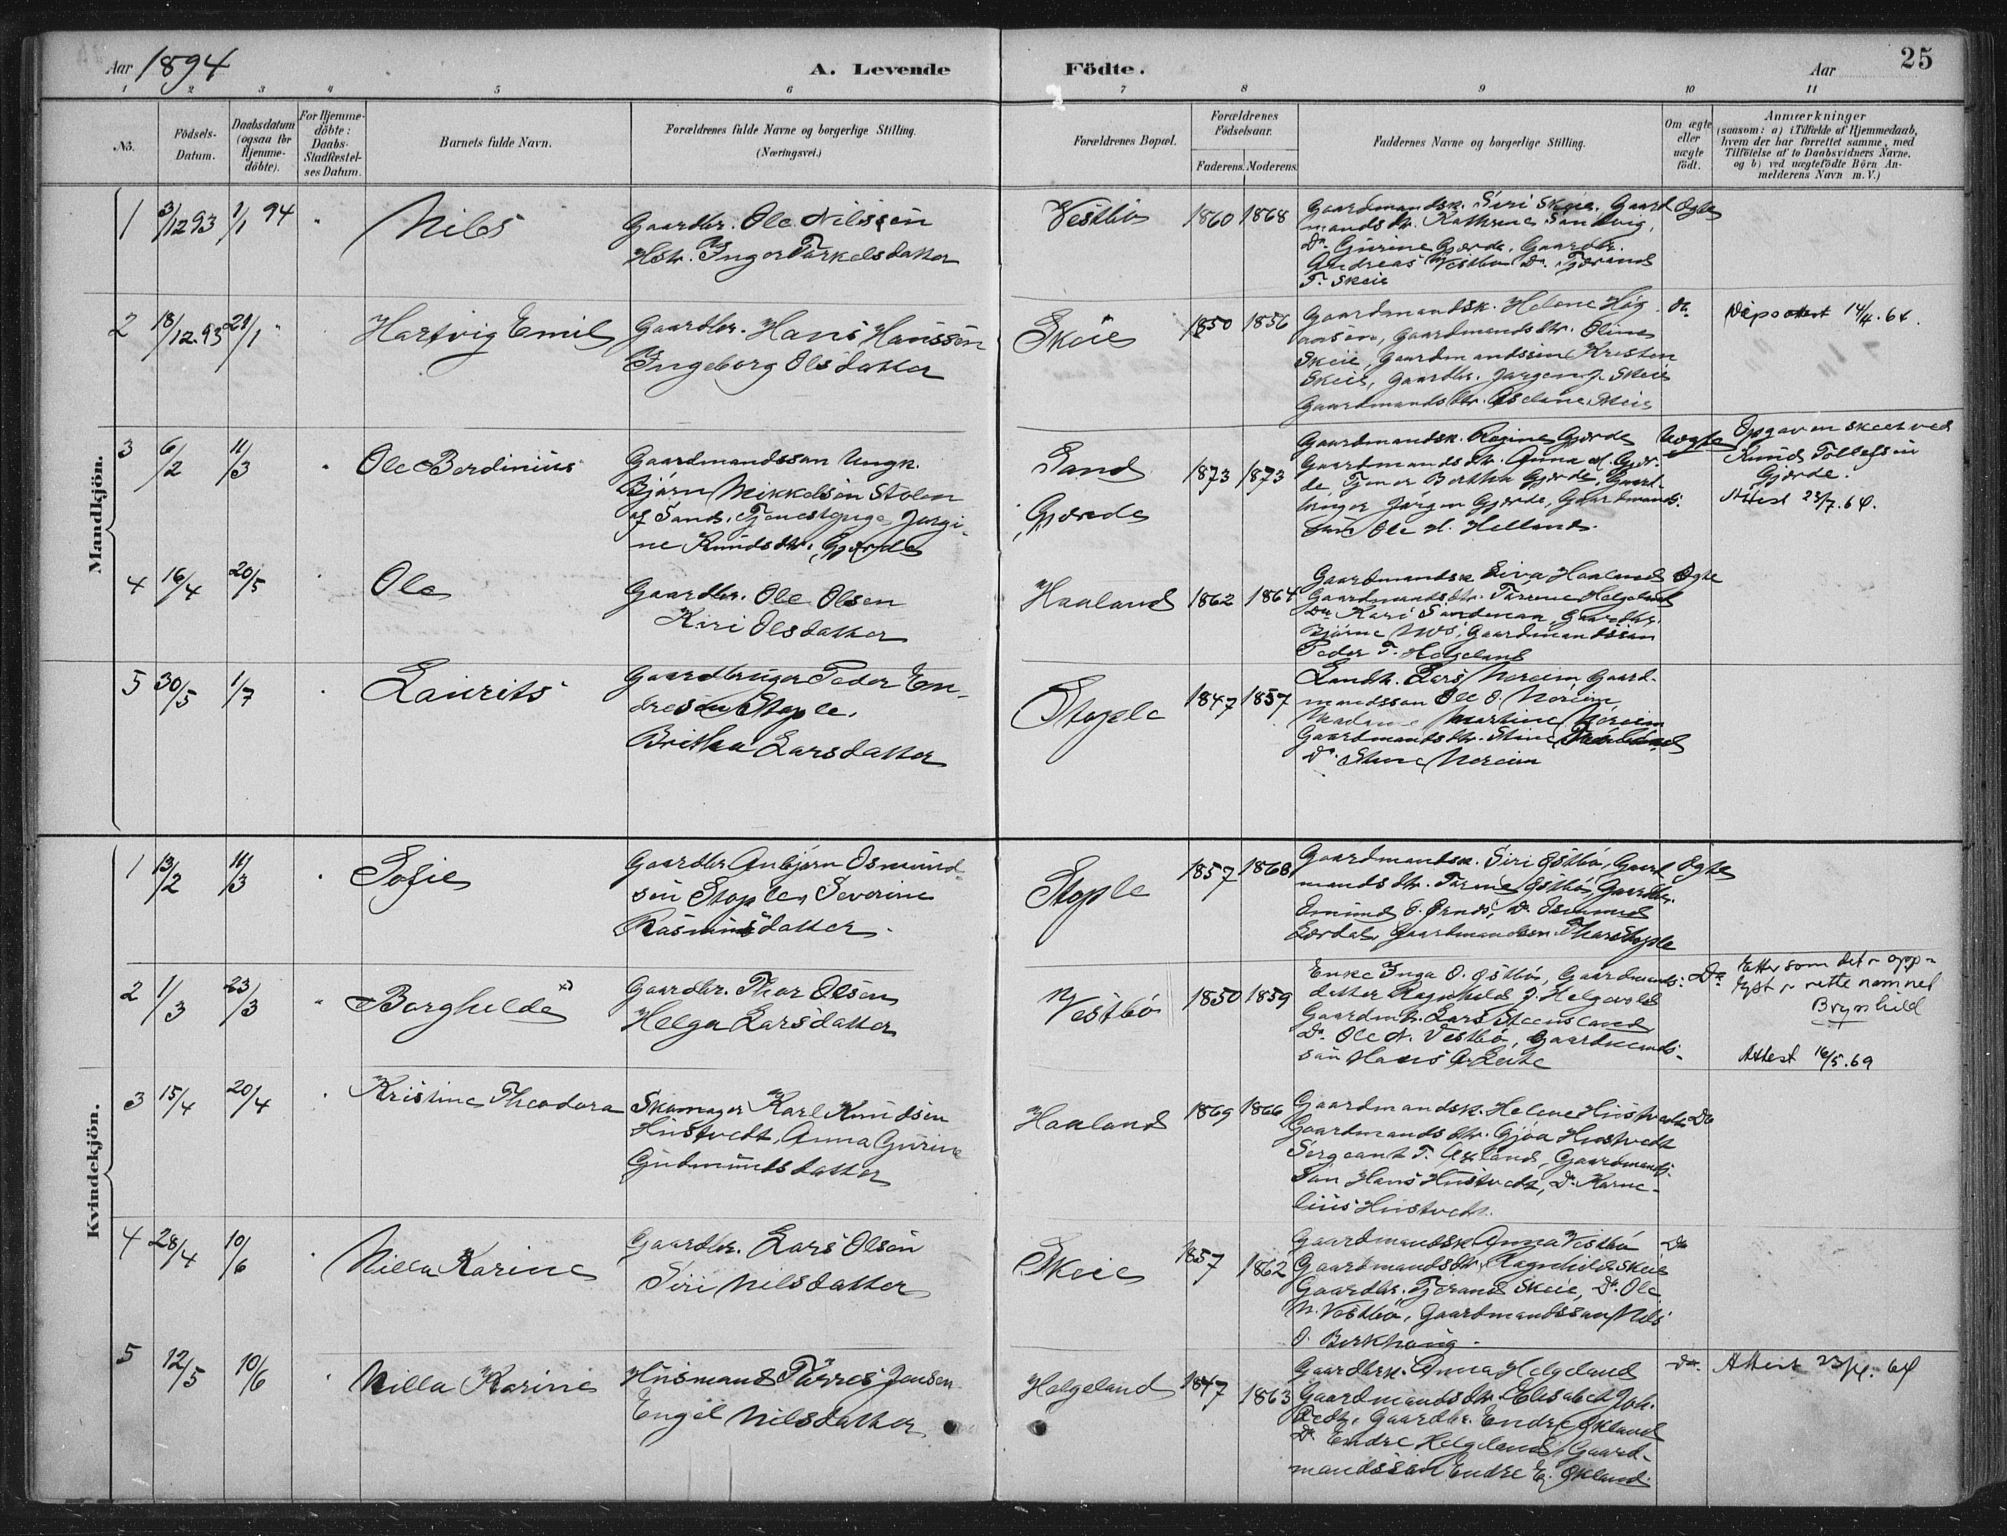 Aar 1894
A. Levende
Födte.
Aar
25
1 2 3 4 5 6 7 8 9 10 11
No.
Födsels-
Datum.
Daabsdatum
(ogsaa for
Hjemme-
döbte).
For Hjemme-
döbte:
Daabs-
Stadfæstel-
ses Datum.
Barnets fulde Navn.
Forældrenes fulde Navne og borgerlige Stilling.
(Næringsvei.)
Forældrenes Bopæl.
Forældrenes
Födselsaar.
Faderens. Moderens.
Faddernes Navne og borgerlige Stilling.
Om ægte
eller
uægte
födt.
Anmærkninger
(saasom: a) i Tilfælde af Hjemmedaab,
hvem der har forrettet samme, med
Tilföielse af to Daabsvidners Navne.
og b) ved uægtefödte Börn An-
melderens Navn m. V.)
Mandkjön.
1 3/12 93 1/1 94
Nils
Gaardbr. Ole Nilssen
Hstr. Inger Torkelsdatter
Vestbö
1860 1868
Gaardmandsk. Siri Skeie, Gaard
mandsdtr. Kathrine Sandvig,
Do Gurine Gjerde, Gaardbr.
Andreas Vestbö Do Tjerand
T. Skeie
Ægte
2 18/12 93 21/1
Hartvig Emil
Gaardbr. Hans Hanssen
Ingeborg Olsdatter
Skeie
1850 1856
Gaardmandsk. Helene
Gaardmandsdtr. Oline
Skeie, Gaardmandssön Kristen
Skeie, Gaardbr. Jørgen J. Skeie
Gaardmandsdtr. Skeie
Do
Dåpsattest 14/4. 64.
3 6/2 11/3
Ole Berdinius
Gaardmandssön Ungk.
Bjørn Mikkelsen Stolen
af Sand, Tjenestepige Jørgi-
ne Knudsdtr. Gjerde
Sand
Gjerde
1873 1873
Gaardmandsk. Ragine Gjerde
Gaardmandsdtr. Anna M. Gjer-
de, Tjener Bertha Gjerde, Gaard-
bruger Jørgen Gjerde, Gaardmands-
sön Ole H. Helland.
Uægte
Opgaven skeet ved
Knud Tollefsen
Gjerde.
Attest 23/7. 64.
4 16/4 20/5
Ole
Gaardbr. Ole Olsen
Kari Olsdatter
Haaland
1862 1864
Gaardmandsk Siva Haaland
Gaardmandsdtr. Helgeland
Do Kari Sandmoen, Gaardbr.
Bjørne Gaardmandssön
Peder T. Helgeland
Ægte
5 30/5 1/7
Laurits
Gaardbruger Peder En-
dresen Stople.
Britha Larsdatter
Stople
1847 1857
Landh. Lars Noreim Gaard-
mandssön Ole O. Noreim
Madme Martine Noreim
Gaardmandsdtr. Stine
Do. Stine Noreim
Kvindekjön.
1 13/2 11/3
Sofie
Gaardbr Anbjørn Osmund-
sen Stople, Severine
Rasmusdatter.
Stople
1857 1860
Gaardmandsk. Siri Østbö, Gaard
mandsdtr. Østbö, Gaardbr.
Do Osmund
Lærdal, Gaardmandssön Thore Stople
Ægte
2 1/3 23/3
Borghilde x)
Gaardbr. Thor Olsen
Helga Larsdatter
Vestbö
1850 1859
Enke Inga O. Østbö, Gaardmands-
datter Ragnhild J. Helgevold
Gaardm. Lars Steensland
Do Ole N. Vestbö, Gaardmands-
sön Hans Leite
Do
Etter som det er opp-
lyst er rette namnet
Brynhild
Attest 16/5. 69
3 15/4 20/4
Kristine Theodora
Skomager Karl Knudsen
Hustvedt, Anna Gurine
Gudmundsdatter
Haaland
1869 1866
Gaardmandsk. Helene Hustvedt
Gaardmandsdtr. Gjøa Hustvedt
Sergeant T. Gaardmands-
sön Hans Hustvedt, Do Korne-
lius Hustvedt.
Do
4 28/4 10/6
Nilla Karine
Gaardbr. Lars Olsen
Siri Nilsdatter
Skeie
1857 1862
Gaardmandsk Anna Vestbö
Gaardmandsdtr. Ragnhild Skeie
Gaardbr. Tjerand Skeie, Do. Ole
N. Vestbö, Gaardmandssön Nils
O. Berkhaug.
Do
5 12/5 10/6
Nilla Karine
Husmand Tørres Jensen
Engel Nilsdatter
Helgeland
1847 1863
Gaardbrk. Anna Helgeland
Gaardmandsdtr. Elisabet Joh.
Gaardbr. Endre Økland
Do Endre Helgeland, Gaard-
mandssön Endre E. Økland.
Do.
Attest 23/4. 64